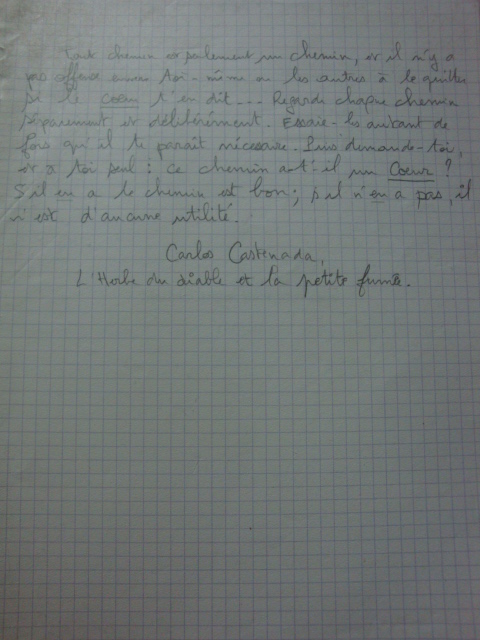 Tout chemin est seulement un chemin, et il n'y a
pas offense envers toi-même ou les autres à le quitter
si le coeur t'en dit... Regarde chaque chemin
séparément et délibérément. Essaie-les autant de
fois qu'il te paraît nécessaire. Puis demande-toi,
et à toi seul : ce chemin a-t-il un Coeur ?
S'il en a le chemin est bon ; s'il n'en a pas, il
n'est d'aucune utilité.
Carlos Castenada,
L'Herbe du diable et la petite fumée.